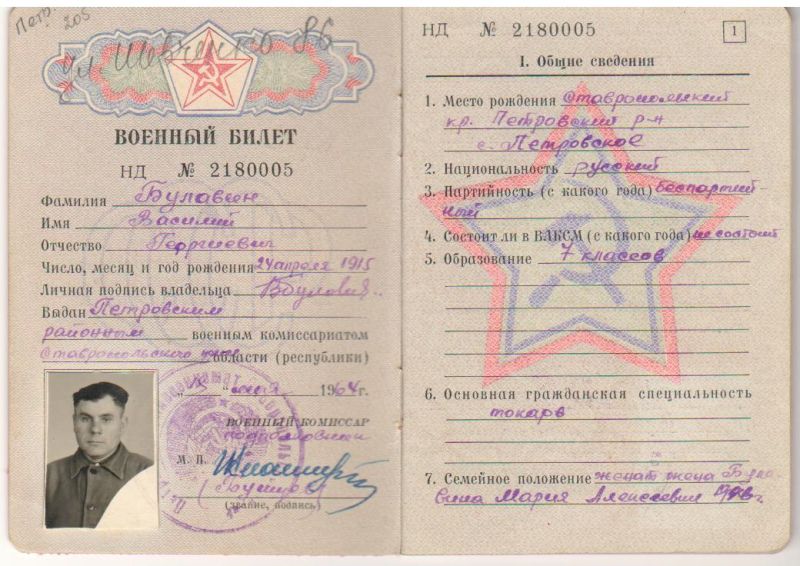 Петр. 205
ул. Шевченко 86
ВОЕННЫЙ БИЛЕТ
НД № 2180005
Фамилия Булавин
Имя Василий
Отчество Георгиевич
Число, месяц и год рождения 24 апреля 1915
Личная подпись владельца
Выдан Петровским
районным военным комиссариатом
Ставропольского края области (республики)
мая 1964 г.
ВОЕННЫЙ КОМИССАР
подполковник
М. П.
(звание, подпись)
НД № 2180005 1
I. Общие сведения
1. Место рождения Ставропольский
кр. Петровский р-н
с. Петровское
2. Национальность русский
3. Партийность (с какого года) беспартий-
ный
4. Состоит ли в ВЛКСМ (с какого года) не состоит
5. Образование 7 классов
6. Основная гражданская специальность
токарь
7. Семейное положение женат жена Була-
вина Мария Алексеевна